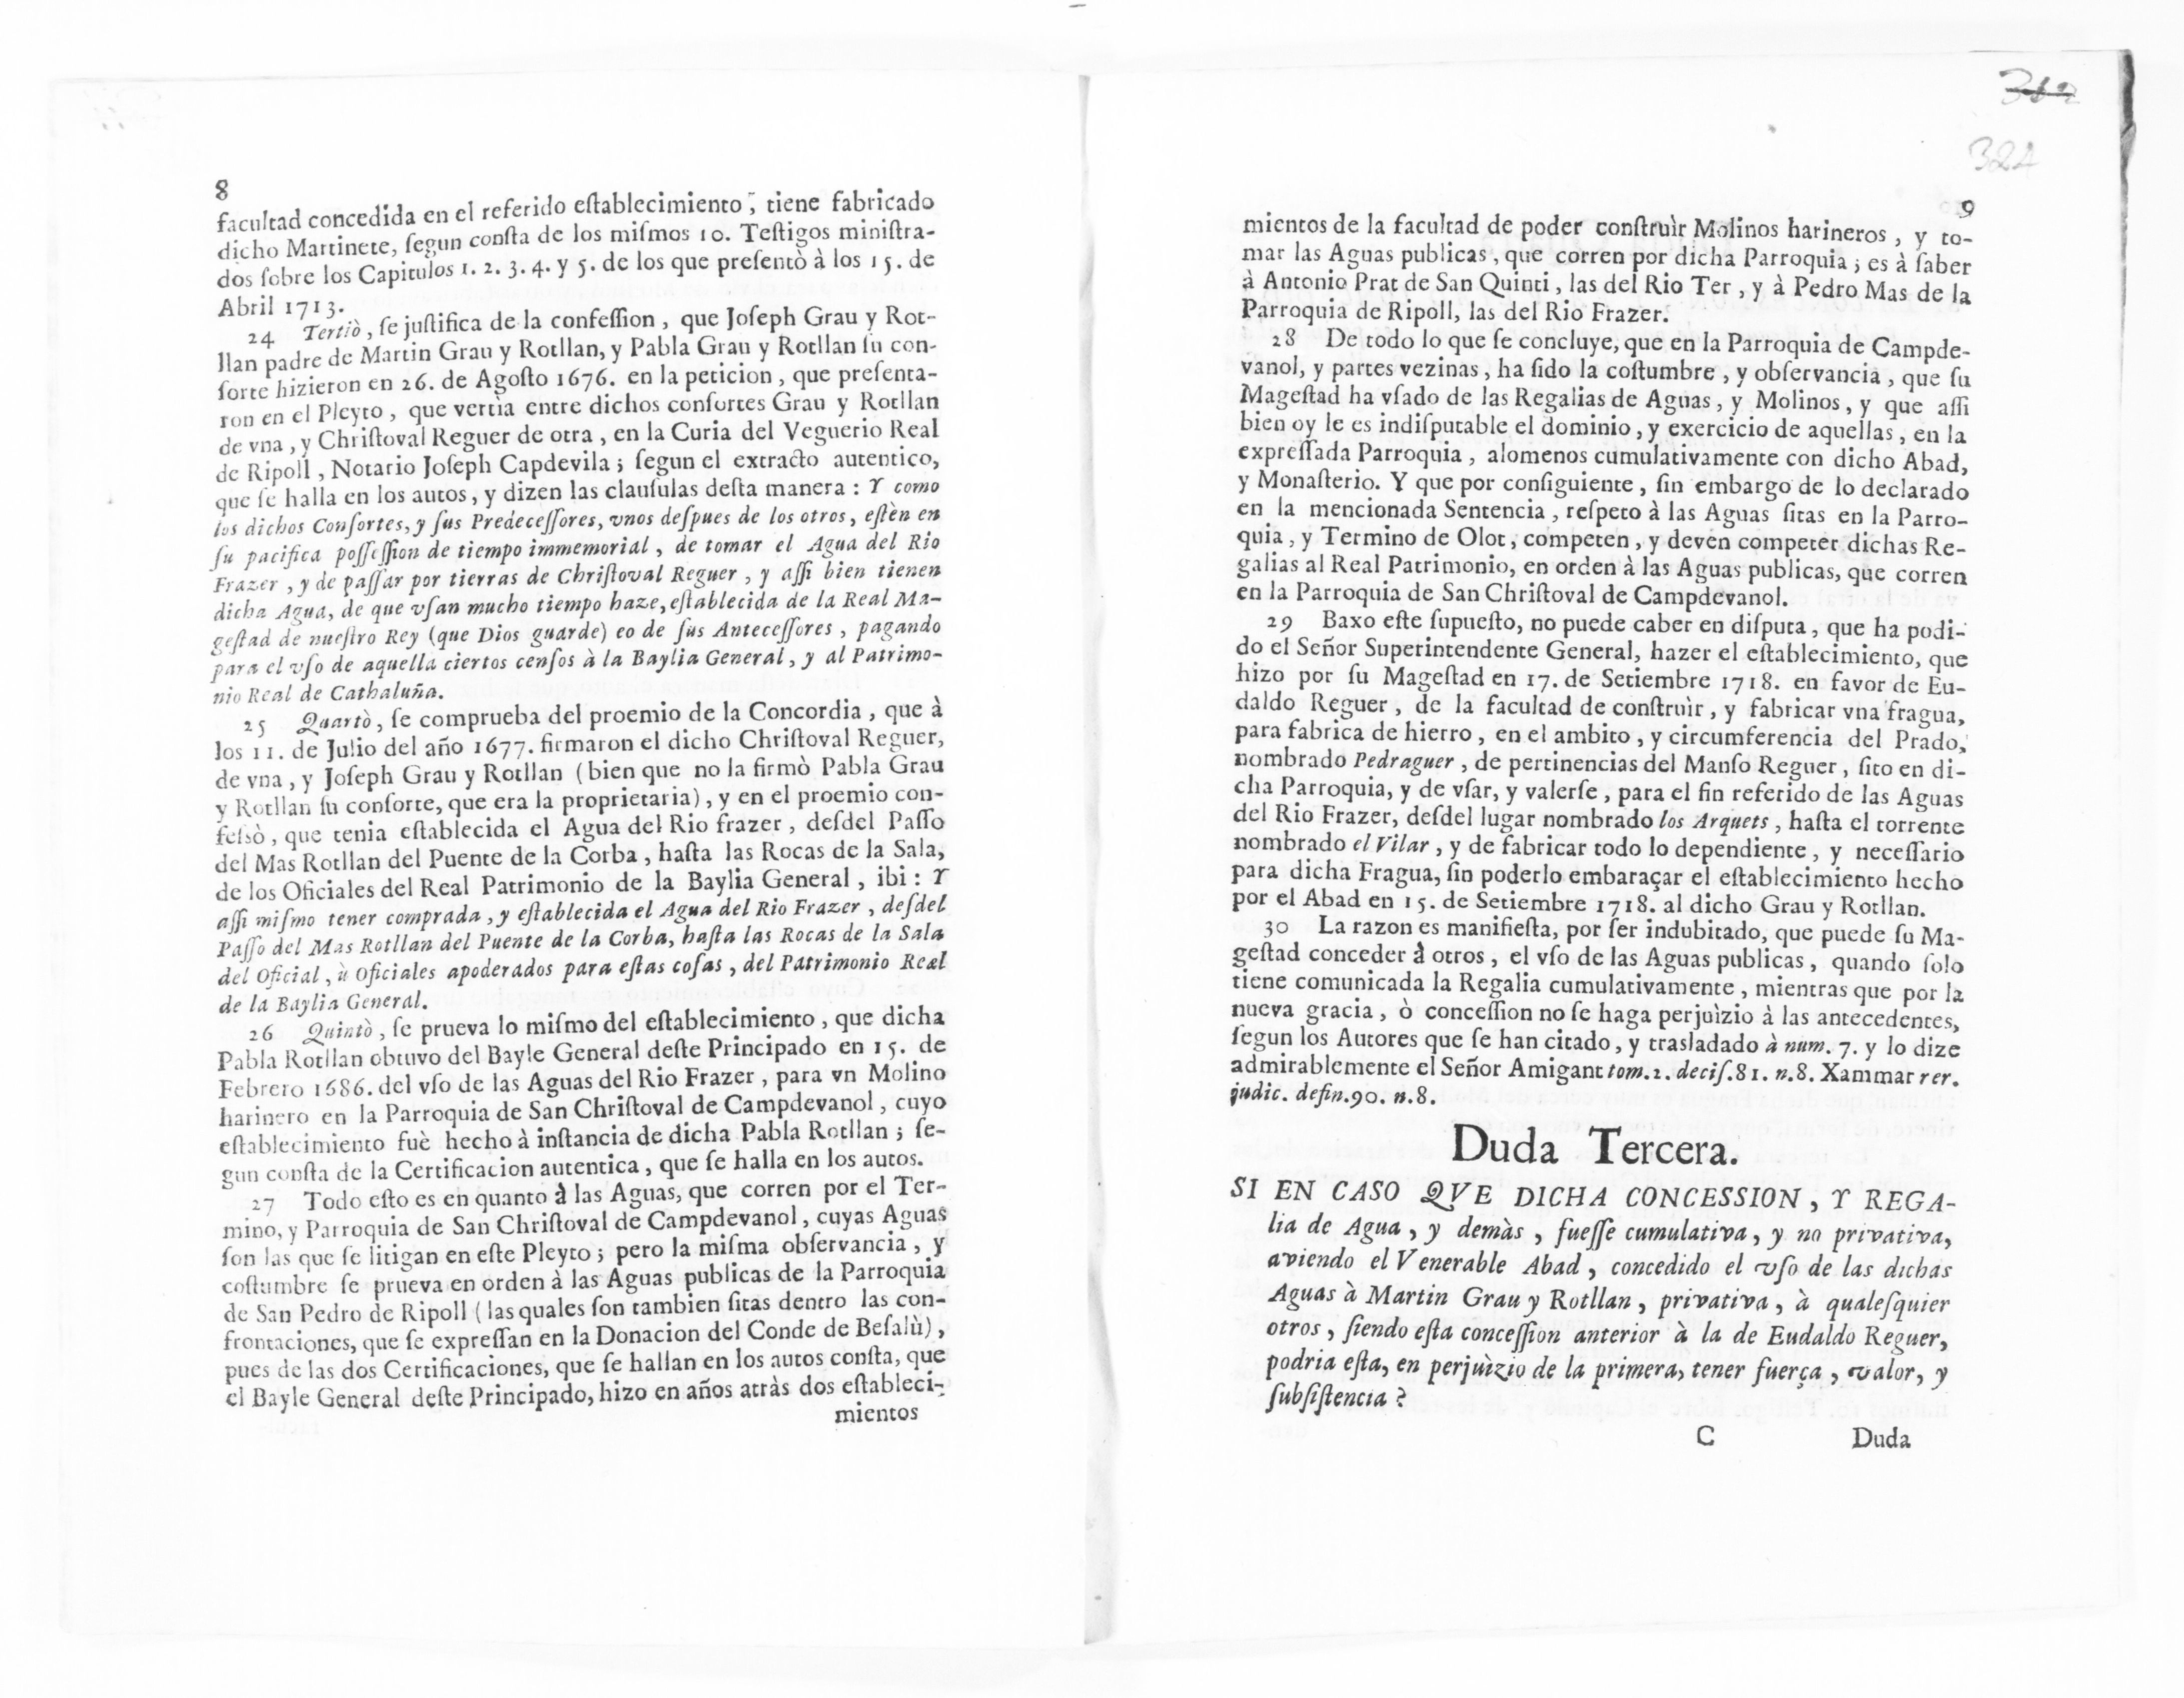 8
facultad concedida en el referido eſtablecimiento, tiene fabricado
dicho Martinete, ſegun conſta de los miſmos 10. Teſtigos miniſtra-
dos ſobre los Capitulos 1. 2. 3. 4. y 5. de los que preſentò à los 15. de
Abril 1713.
24 Tertiò, ſe juſtifica de la confeſſion, que Joſeph Grau y Rot-
llan padre de Martin Grau y Rotllan, y Pabla Grau y Rotllan ſu con-
ſorte hizieron en 26. de Agoſto 1676. en la peticion, que preſenta-
ron en el Pleyto, que vertìa entre dichos conſortes Grau y Rotllan
de vna, y Chriſtoval Reguer de otra, en la Curia del Veguerio Real
de Ripoll, Notario Joſeph Capdevila; ſegun el extracto autentico,
que ſe halla en los autos, y dizen las clauſulas deſta manera: Y como
los dichos Conſortes, y ſus Predeceſſores, vnos deſpues de los otros, eſtèn en
ſu pacifica poſſeſſion de tiempo immemorial, de tomar el Agua del Rio
Frazer, y de paſſar por tierras de Chriſtoval Reguer, y aſſi bien tienen
dicha Agua, de que vſan mucho tiempo haze, eſtablecida de la Real Ma-
geſtad de nueſtro Rey (que Dios guarde) eo de ſus Anteceſſores, pagando
para el vſo de aquella ciertos cenſos à la Baylia General, y al Patrimo-
nio Real de Cathaluña.
25 Quartò, ſe comprueba del proemio de la Concordia, que à
los 11. de Julio del año 1677. firmaron el dicho Chriſtoval Reguer,
de vna, y Joſeph Grau y Rotllan (bien que no la firmò Pabla Grau
y Rotllan ſu conſorte, que era la proprietaria), y en el proemio con-
feſsò, que tenia eſtablecida el Agua del Rio frazer, deſdel Paſſo
del Mas Rotllan del Puente de la Corba, haſta las Rocas de la Sala,
de los Oficiales del Real Patrimonio de la Baylia General, ibi: Y
aſſi miſmo tener comprada, y eſtablecida el Agua del Rio Frazer, deſdel
Paſſo del Mas Rotllan del Puente de la Corba, haſta las Rocas de la Sala
del Oficial, ù Oficiales apoderados para eſtas coſas, del Patrimonio Real
de la Baylia General.
26 Quintò, ſe prueva lo miſmo del eſtablecimiento, que dicha
Pabla Rotllan obtuvo del Bayle General deſte Principado en 15. de
Febrero 1686. del vſo de las Aguas del Rio Frazer, para vn Molino
harinero en la Parroquia de San Chriſtoval de Campdevanol, cuyo
eſtablecimiento fuè hecho à inſtancia de dicha Pabla Rotllan; ſe-
gun conſta de la Certificacion autentica, que ſe halla en los autos.
27 Todo eſto es en quanto à las Aguas, que corren por el Ter-
mino, y Parroquia de San Chriſtoval de Campdevanol, cuyas Aguas
ſon las que ſe litigan en eſte Pleyto; pero la miſma obſervancia, y
coſtumbre ſe prueva en orden à las Aguas publicas de la Parroquia
de San Pedro de Ripoll (las quales ſon tambien ſitas dentro las con-
frontaciones, que ſe expreſſan en la Donacion del Conde de Beſalù),
pues de las dos Certificaciones, que ſe hallan en los autos conſta, que
el Bayle General deſte Principado, hizo en años atràs dos eſtableci-
mientos
324
9
mientos de la facultad de poder conſtruìr Molinos harineros, y to-
mar las Aguas publicas, que corren por dicha Parroquia; es à ſaber
à Antonio Prat de San Quinti, las del Rio Ter, y à Pedro Mas de la
Parroquia de Ripoll, las del Rio Frazer.
28 De todo lo que ſe concluye, que en la Parroquia de Campde-
vanol, y partes vezinas, ha ſido la coſtumbre, y obſervancia, que ſu
Mageſtad ha vſado de las Regalias de Aguas, y Molinos, y que aſſi
bien oy le es indiſputable el dominio, y exercicio de aquellas, en la
expreſſada Parroquia, alomenos cumulativamente con dicho Abad,
y Monaſterio. Y que por conſiguiente, ſin embargo de lo declarado
en la mencionada Sentencia, reſpeto à las Aguas ſitas en la Parro-
quia, y Termino de Olot, competen, y deven competer dichas Re-
galias al Real Patrimonio, en orden à las Aguas publicas, que corren
en la Parroquia de San Chriſtoval de Campdevanol.
29 Baxo eſte ſupueſto, no puede caber en diſputa, que ha podi-
do el Señor Superintendente General, hazer el eſtablecimiento, que
hizo por ſu Mageſtad en 17. de Setiembre 1718. en favor de Eu-
daldo Reguer, de la facultad de conſtruìr, y fabricar vna fragua,
para fabrica de hierro, en el ambito, y circumferencia del Prado,
nombrado Pedraguer, de pertinencias del Manſo Reguer, ſito en di-
cha Parroquia, y de vſar, y valerſe, para el fin referido de las Aguas
del Rio Frazer, deſdel lugar nombrado los Arquets, haſta el torrente
nombrado el Vilar, y de fabricar todo lo dependiente, y neceſſario
para dicha Fragua, ſin poderlo embaraçar el eſtablecimiento hecho
por el Abad en 15. de Setiembre 1718. al dicho Grau y Rotllan.
30 La razon es manifieſta, por ſer indubitado, que puede ſu Ma-
geſtad conceder à otros, el vſo de las Aguas publicas, quando ſolo
tiene comunicada la Regalia cumulativamente, mientras que por la
nueva gracia, ò conceſſion no ſe haga perjuìzio à las antecedentes,
ſegun los Autores que ſe han citado, y trasladado à num. 7. y lo dize
admirablemente el Señor Amigant tom. 2. deciſ. 81. n. 8. Xammar rer.
judic. defin. 90. n. 8.
Duda Tercera.
SI EN CASO QVE DICHA CONCESSION, Y REGA-
lia de Agua, y demàs, fueſſe cumulativa, y no privativa,
aviendo el Venerable Abad, concedido el vſo de las dichas
Aguas à Martin Grau y Rotllan, privativa, à qualeſquier
otros, ſiendo eſta conceſſion anterior à la de Eudaldo Reguer,
podria eſta, en perjuìzio de la primera, tener fuerça, valor, y
ſubſiſtencia?
C Duda